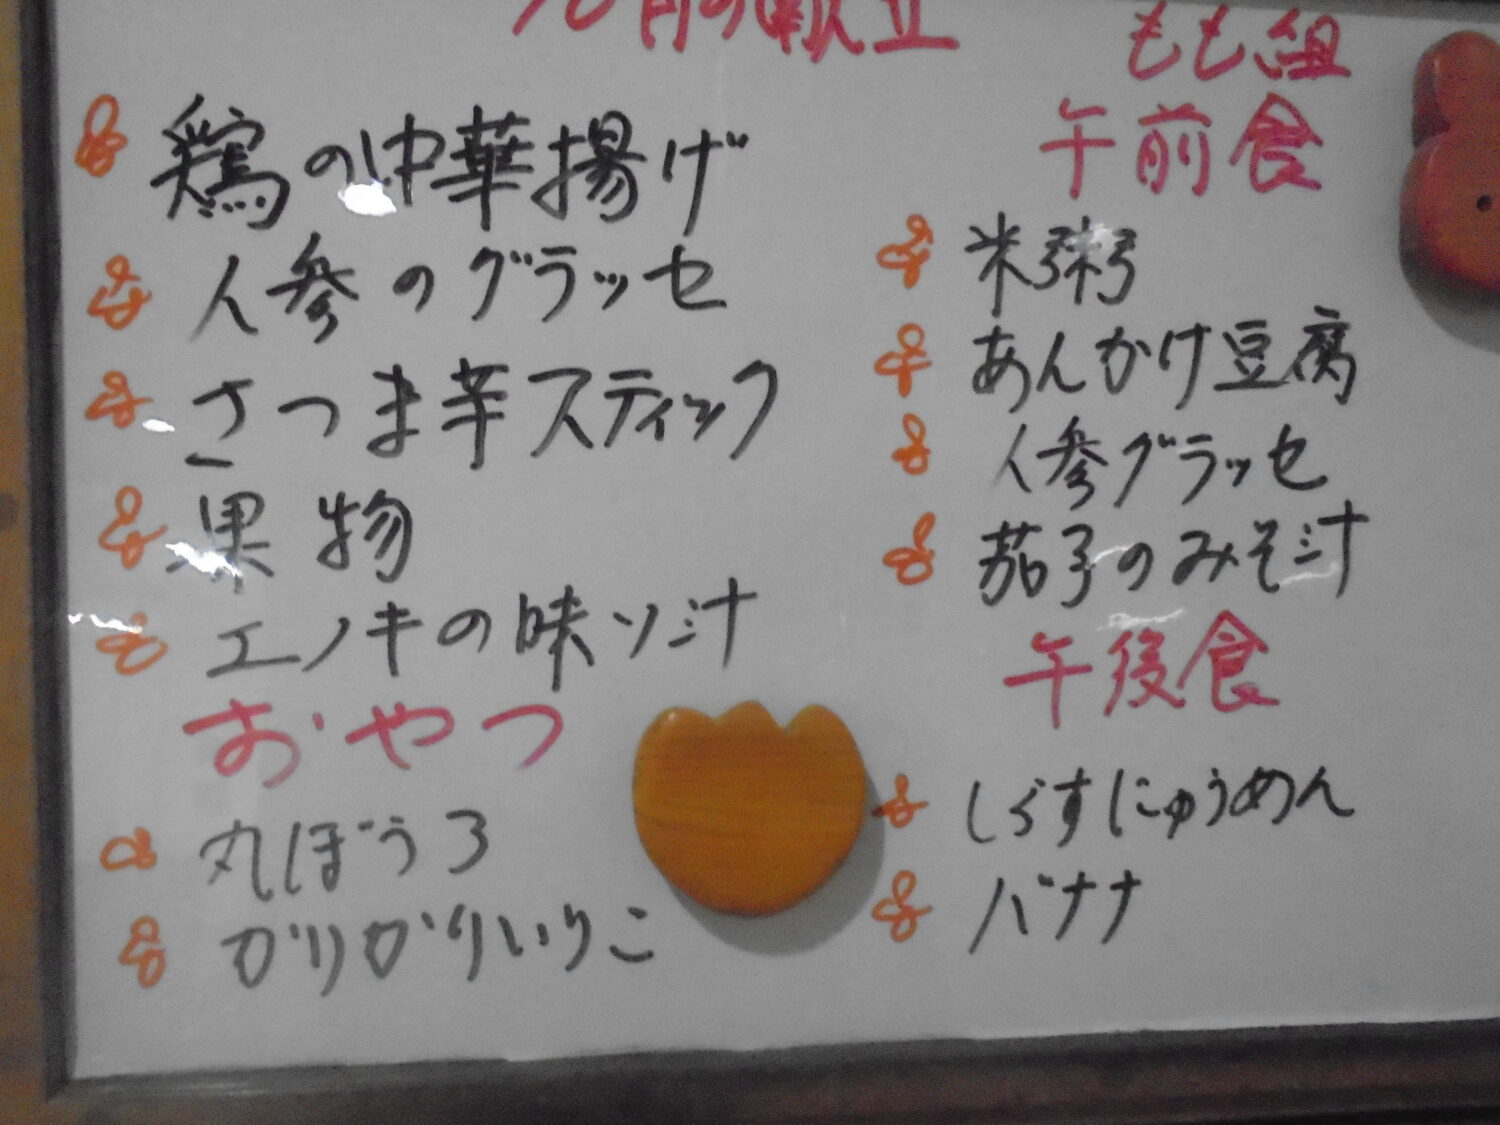 の献立
鶏の中華揚げ
人参のグラッセ
さつま芋スティック
果物
エノキの味ソ汁
おやつ
丸ぼうろ
かりかりいりこ
もも組
午前食
米粥
あんかけ豆腐
人参グラッセ
茄子のみそ汁
午後食
しらすにゅうめん
バナナ